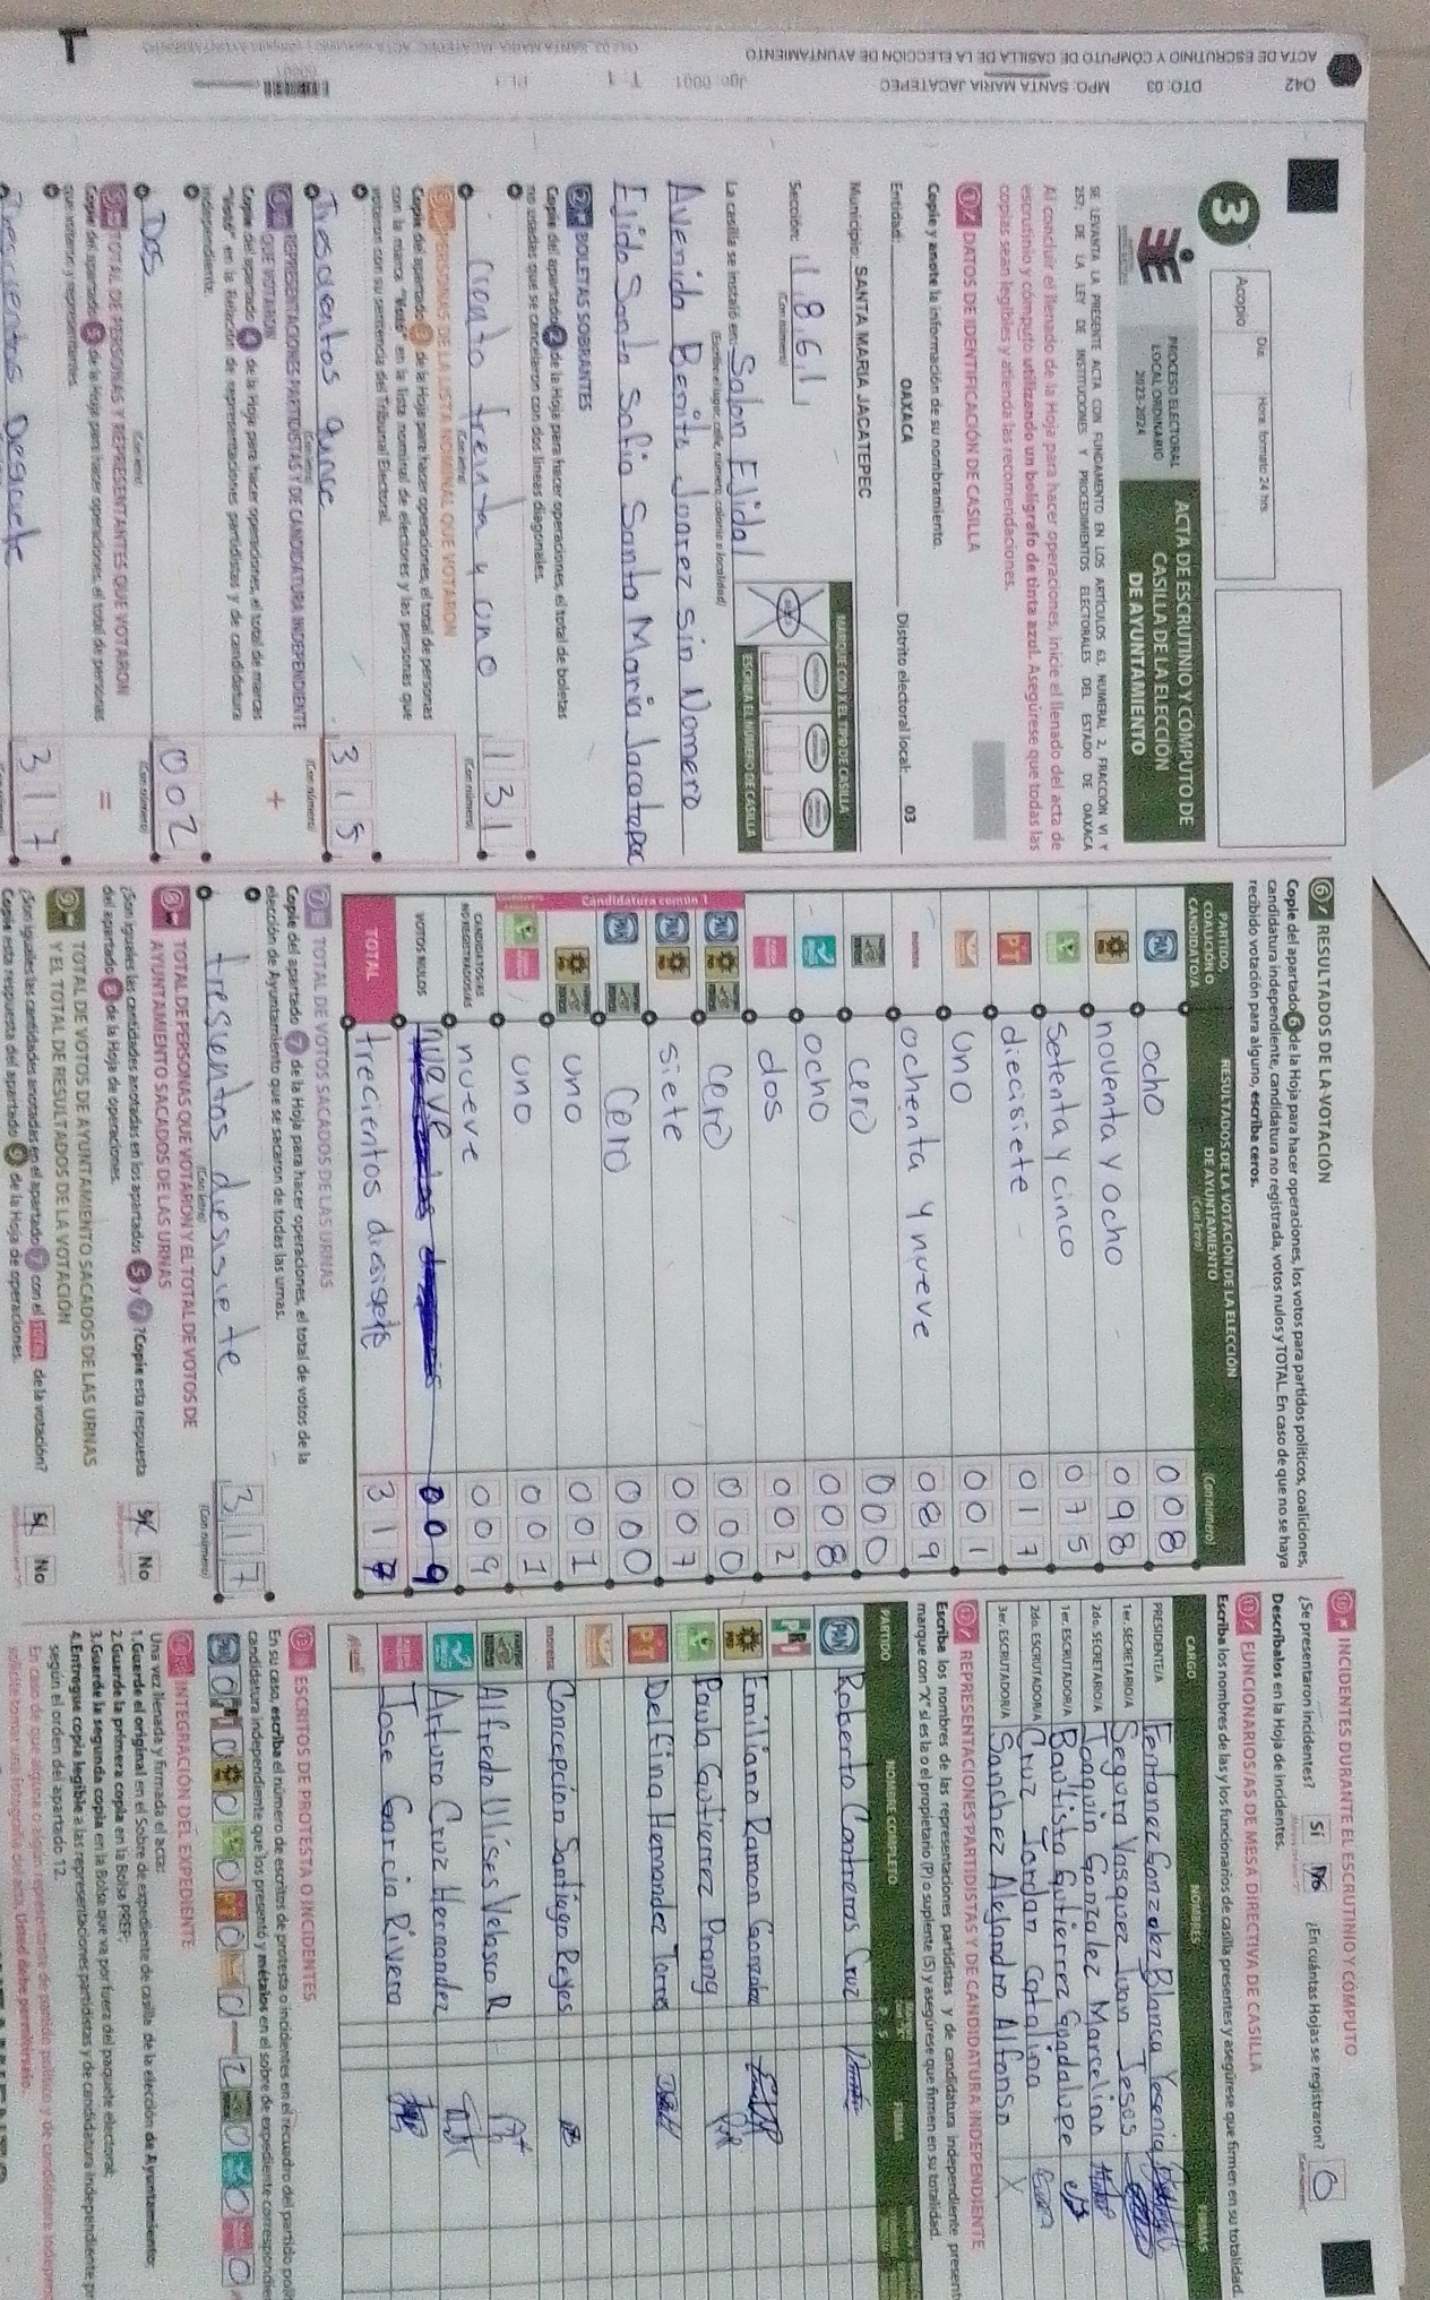 ACTA DE ESCRUTINIO Y CÓMPUTO DE CASILLA DE LA ELECCIÓN DE AYUNTAMIENTO
042 DTO: 03 MPO: SANTA MARIA JACATEPEC
3
Acopio
Día: Hora: formato 24 hrs
PROCESO ELECTORAL
LOCAL ORDINARIO
2023-2024
ACTA DE ESCRUTINIO Y CÓMPUTO DE
CASILLA DE LA ELECCIÓN
DE AYUNTAMIENTO
SE LEVANTA LA PRESENTE ACTA CON FUNDAMENTO EN LOS ARTÍCULOS 63, NUMERAL 2, FRACCIÓN VI Y
257; DE LA LEY DE INSTITUCIONES Y PROCEDIMIENTOS ELECTORALES DEL ESTADO DE OAXACA
Al concluir el llenado de la Hoja para hacer operaciones, inicie el llenado del acta de
escrutinio y cómputo utilizando un bolígrafo de tinta azul. Asegúrese que todas las
copias sean legibles y atienda las recomendaciones.
1 DATOS DE IDENTIFICACIÓN DE CASILLA
Copie y anote la información de su nombramiento.
Entidad: OAXACA Distrito electoral local: 03
Municipio: SANTA MARÍA JACATEPEC
Sección: 1861
(Con número)
MARQUE CON X EL TIPO DE CASILLA
ESCRIBA EL NÚMERO DE CASILLA
La casilla se instaló en: Salon Ejidal
(Escriba el lugar, calle, número, colonia o localidad)
Avenida Benito Juarez sin Numero
Ejido Santa Sofia Santa Maria Jacatepec
2 BOLETAS SOBRANTES
Copie del apartado 2 de la Hoja para hacer operaciones, el total de boletas
no usadas que se cancelaron con dos líneas diagonales.
ciento treinta y uno 131
(Con letra) (Con número)
3 PERSONAS DE LA LISTA NOMINAL QUE VOTARON
Copie del apartado 3 de la Hoja para hacer operaciones, el total de personas
con la marca "Votó" en la lista nominal de electores y las personas que
votaron con su sentencia del Tribunal Electoral.
Trescientos Quince 315
(Con letra) (Con número)
4 REPRESENTACIONES PARTIDISTAS Y DE CANDIDATURA INDEPENDIENTE
QUE VOTARON
Copie del apartado 4 de la Hoja para hacer operaciones, el total de marcas
"Votó" en la Relación de representaciones partidistas y de candidatura
independiente.
Dos 002
(Con letra) (Con número)
5 TOTAL DE PERSONAS Y REPRESENTANTES QUE VOTARON
Copie del apartado 5 de la Hoja para hacer operaciones, el total de personas
que votaron y representantes.
317
6 RESULTADOS DE LA VOTACIÓN
Copie del apartado 6 de la Hoja para hacer operaciones, los votos para partidos políticos, coaliciones,
candidatura independiente, candidatura no registrada, votos nulos y TOTAL. En caso de que no se haya
recibido votación para alguno, escriba ceros.
PARTIDO, COALICIÓN O CANDIDATO/A RESULTADOS DE LA VOTACIÓN DE LA ELECCIÓN DE AYUNTAMIENTO (Con letra) (Con número)
PAN ocho 008
PRD noventa y ocho 098
setenta y cinco 075
PT diecisiete 017
uno 001
morena ochenta y nueve 089
cero 000
ocho 008
dos 002
Candidatura común 1
cero 000
siete 007
cero 000
uno 001
uno 001
CANDIDATOS/AS NO REGISTRADOS/AS nueve 009
VOTOS NULOS nueve 009
TOTAL trecientos diecisiete 317
7 TOTAL DE VOTOS SACADOS DE LAS URNAS
Copie del apartado 7 de la Hoja para hacer operaciones, el total de votos de la
elección de Ayuntamiento que se sacaron de todas las urnas.
tresientos diesisiete 317
(Con letra) (Con número)
8 TOTAL DE PERSONAS QUE VOTARON Y EL TOTAL DE VOTOS DE
AYUNTAMIENTO SACADOS DE LAS URNAS
¿Son iguales las cantidades anotadas en los apartados 5 y 7? Copie esta respuesta
del apartado 8 de la Hoja de operaciones. Sí No
9 TOTAL DE VOTOS DE AYUNTAMIENTO SACADOS DE LAS URNAS
Y EL TOTAL DE RESULTADOS DE LA VOTACIÓN
¿Son iguales las cantidades anotadas en el apartado 7 con el TOTAL de la votación?
Copie esta respuesta del apartado 9 de la Hoja de operaciones. Sí No
10 INCIDENTES DURANTE EL ESCRUTINIO Y CÓMPUTO
¿Se presentaron incidentes? Sí No ¿En cuántas Hojas se registraron? 0
Descríbalos en la Hoja de incidentes.
11 FUNCIONARIOS/AS DE MESA DIRECTIVA DE CASILLA
Escriba los nombres de las y los funcionarios de casilla presentes y asegúrese que firmen en su totalidad.
CARGO NOMBRES FIRMAS
PRESIDENTE/A Fentanez Gonzalez Blanca Yesenia
1er. SECRETARIO/A Segura Vasquez Juan Jesus
2do. SECRETARIO/A Joaquin Gonzalez Marcelino
1er. ESCRUTADOR/A Bautista Gutierrez Guadalupe
2do. ESCRUTADOR/A Cruz Jordan Catalina
3er. ESCRUTADOR/A Sanchez Alejandro Alfonso X
12 REPRESENTACIONES PARTIDISTAS Y DE CANDIDATURA INDEPENDIENTE
Escriba los nombres de las representaciones partidistas y de candidatura independiente present
marque con "X" si es la o el propietario (P) o suplente (S) y asegúrese que firmen en su totalidad.
PARTIDO NOMBRE COMPLETO P S FIRMAS
PAN Roberto Contreras Cruz
PRI
PRD Emiliano Ramon Gonzalez
Paula Gutierrez Prong
PT Delfina Hernandez Torres
morena Concepcion Santiago Reyes
Alfredo Ulises Velasco R
Arturo Cruz Hernandez
Jose Garcia Rivera
13 ESCRITOS DE PROTESTA O INCIDENTES
En su caso, escriba el número de escritos de protesta o incidentes en el recuadro del partido polít
candidatura independiente que los presentó y métalos en el sobre de expediente correspondie
INTEGRACIÓN DEL EXPEDIENTE
Una vez llenada y firmada el acta:
1. Guarde el original en el Sobre de expediente de casilla de la elección de Ayuntamiento;
2. Guarde la primera copia en la Bolsa PREP;
3. Guarde la segunda copia en la Bolsa que va por fuera del paquete electoral;
4. Entregue copia legible a las representaciones partidistas y de candidatura independiente pr
según el orden del apartado 12.